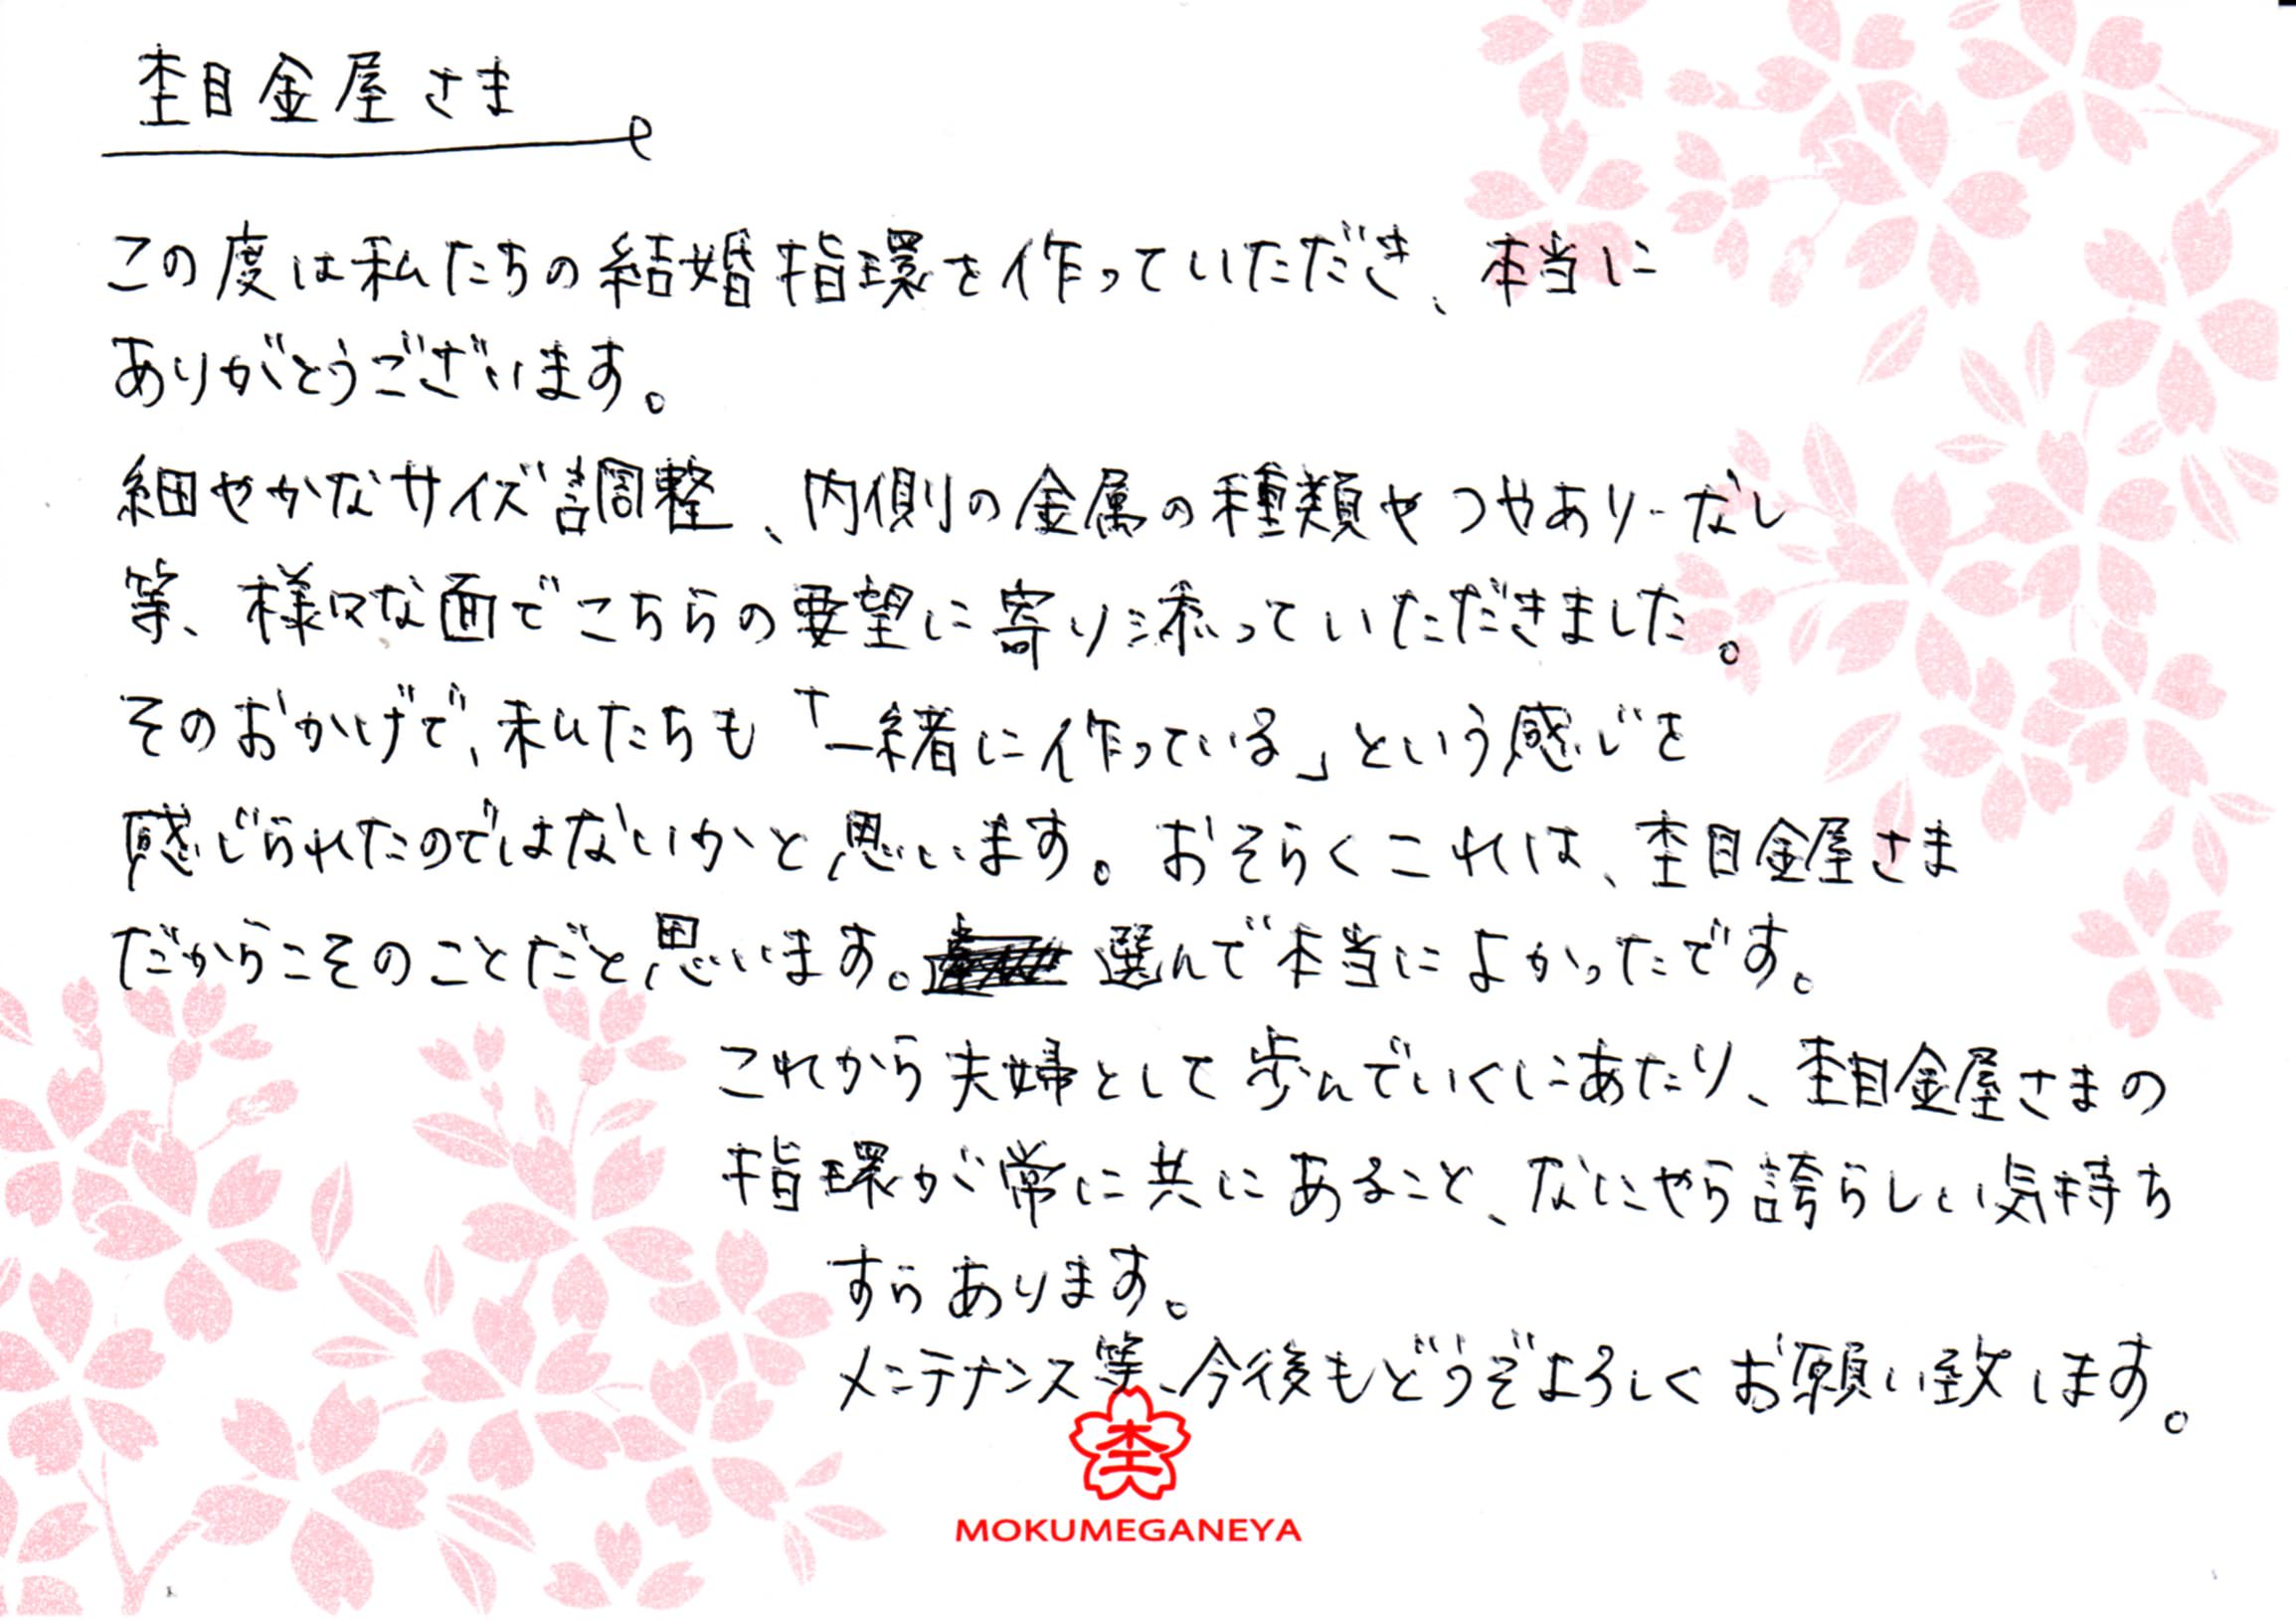 杢目金屋さま
この度は私たちの結婚指環を作っていただき、本当に
ありがとうございます。
細やかなサイズ調整、内側の金属の種類やつやあり・なし
等、様々な面でこちらの要望に寄り添っていただきました。
そのおかげで、私たちも「一緒に作っている」という感じを
感じられたのではないかと思います。おそらくこれは、杢目金屋さま
だからこそのことだと思います。選んで本当によかったです。
これから夫婦として歩んでいくにあたり、杢目金屋さまの
指環が常に共にあること、なにやら誇らしい気持ち
すらあります。
メンテナンス等、今後もどうぞよろしくお願い致します。
杢
MOKUMEGANEYA